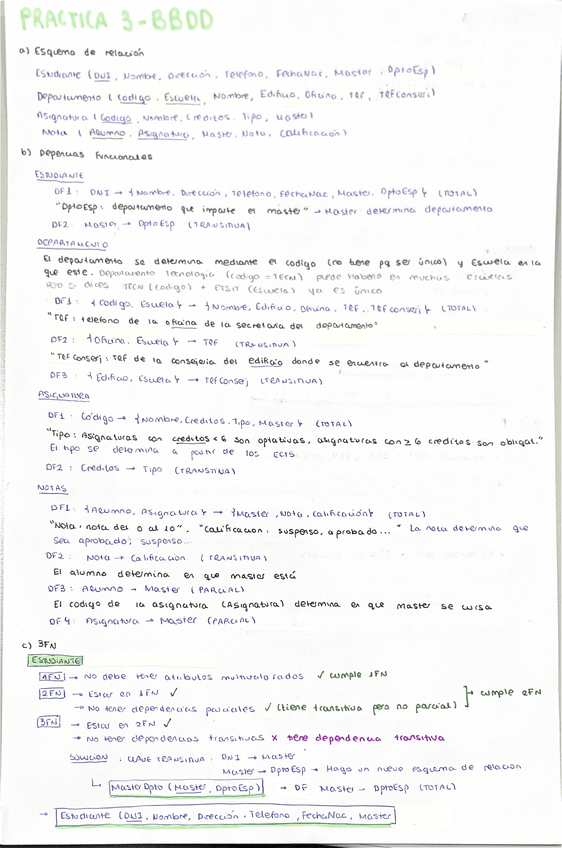 PRACTICA 3-BBDD
a) Esquema de relación
Estudiante (DNI, Nombre, Dirección, Teléfono, FechaNac, Master, DptoEsp)
Departamento (Codigo, Escuela, Nombre, Edificio, Oficina, TEF, TEFConserj)
Asignatura (Codigo, Nombre, Creditos, Tipo, Master)
Nota (Alumno, Asignatura, Master, Nota, Calificación)
b) Depencias Funcionales
ESTUDIANTE
DF1: DNI → {Nombre, Dirección, Telefono, FechaNac, Master, DptoEsp} (TOTAL)
"DptoEsp: departamento que imparte el master" → Master determina departamento
DF2: Master → DptoEsp (TRANSITIVA)
DEPARTAMENTO
El departamento se determina mediante el codigo (no tiene pq ser único) y Escuela en la
que este. Departamento Tecnologia (codigo = TECN) puede haberlo en muchas escuelas
pero si dices TECN (codigo) + ETSIT (Escuela) ya es único
DF1: {Codigo, Escuela} → {Nombre, Edificio, Oficina, TEF, TEFConserj} (TOTAL)
"TEF: telefono de la oficina de la secretaria del departamento"
DF2: {Oficina, Escuela} → TEF (TRANSITIVA)
"TEFConserj: TEF de la consejeria del edificio donde se encuentra el departamento"
DF3: {Edificio, Escuela} → TEFConserj (TRANSITIVA)
ASIGNATURA
DF1: Código → {Nombre, Creditos, Tipo, Master} (TOTAL)
"Tipo: Asignaturas con creditos < 6 son optativas, asignaturas con ≥ 6 creditos son obligat."
El tipo se determina a partir de los ECTS
DF2: Creditos → Tipo (TRANSITIVA)
NOTAS
DF1: {Alumno, Asignatura} → {Master, Nota, Calificación} (TOTAL)
"Nota: nota del 0 al 10". "Calificacion: suspenso, aprobado..." La nota determina que
sea aprobado, suspenso...
DF2: Nota → Calificación (TRANSITIVA)
El alumno determina en que master está
DF3: Alumno → Master (PARCIAL)
El codigo de la asignatura (Asignatura) determina en que master se cursa
DF4: Asignatura → Master (PARCIAL)
c) 3FN
ESTUDIANTE
1FN → No debe tener atributos multivalorados ✓ cumple 1FN
2FN → Estar en 1FN ✓
→ No tener dependencias parciales ✓ (tiene transitiva pero no parcial) } cumple 2FN
3FN → Estar en 2FN ✓
→ No tener dependencias transitivas x tiene dependencia transitiva
SOLUCION: CLAVE TRANSITIVA: DNI → Master
Master → DptoEsp → Hago un nuevo esquema de relacion
MasterDpto (Master, DptoEsp) → DF Master → DptoEsp (TOTAL)
→ Estudiante (DNI, Nombre, Dirección, Telefono, FechaNac, Master